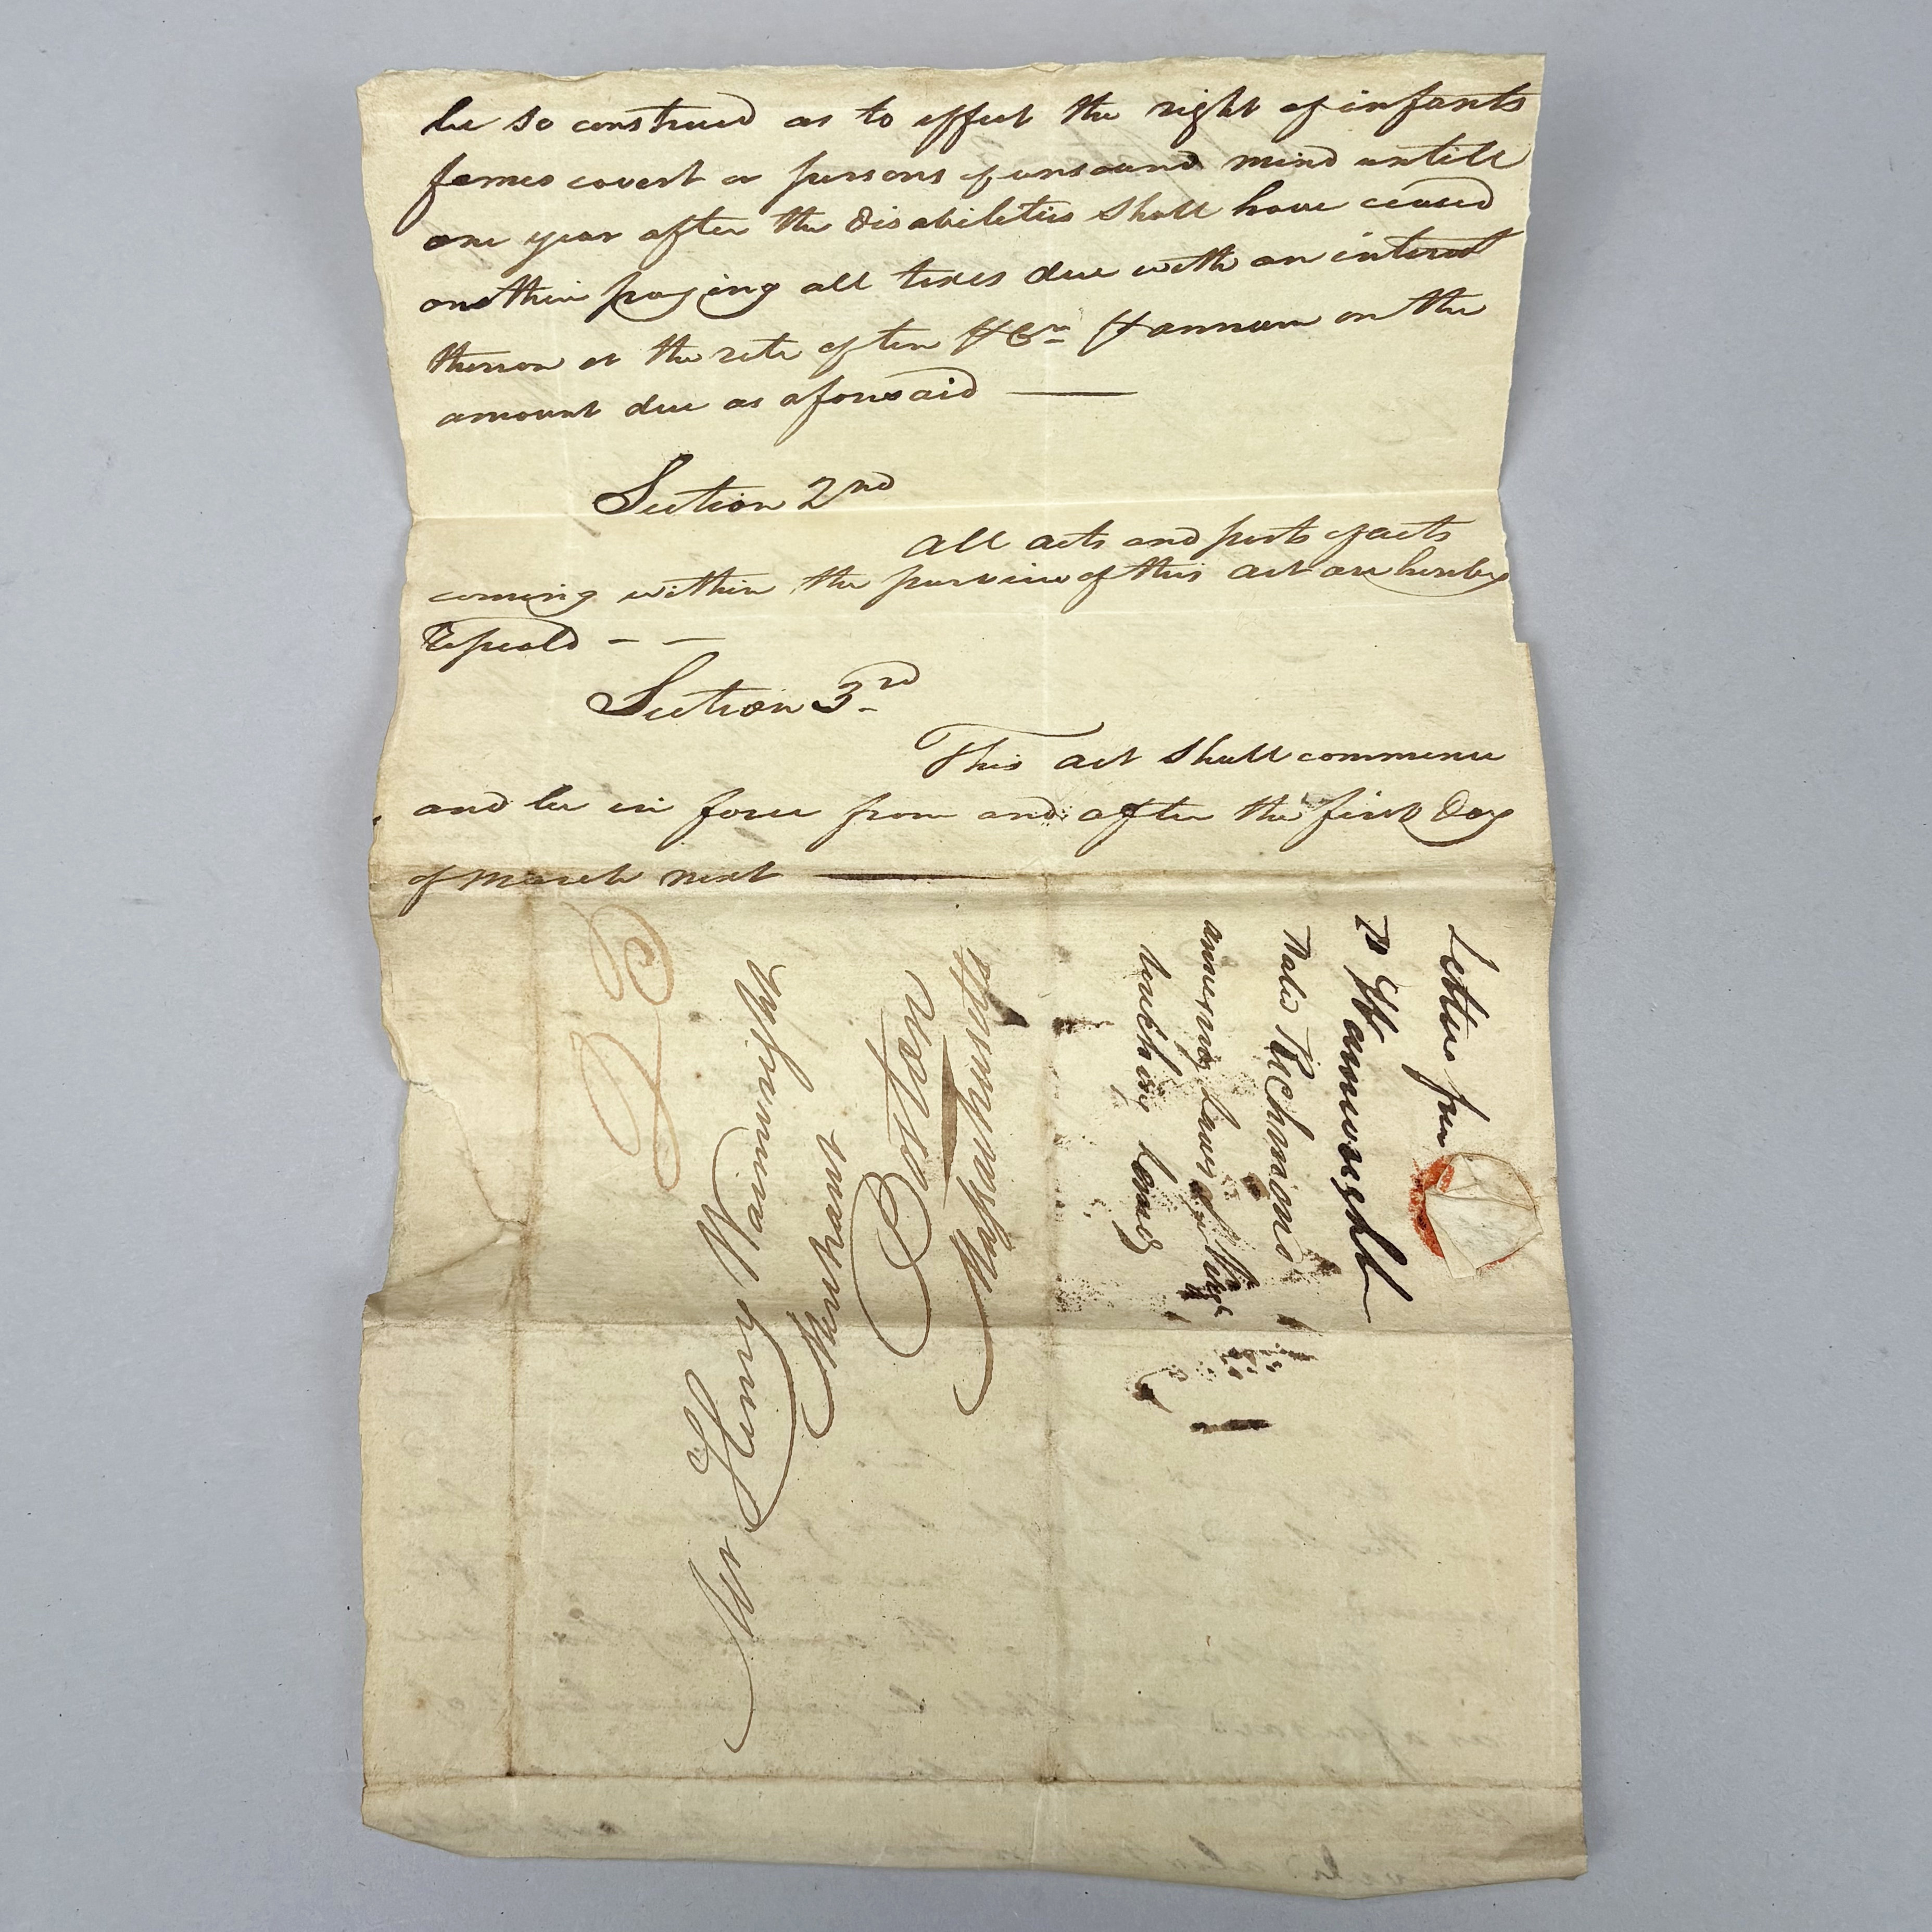 be so construed as to effect the right of infants
femes covert or persons of unsound mind untill
one year after the disabilities shall have ceased
and their paying all taxes due with an interest
thereon at the rate of ten ⅌ Ct ⅌ annum on the
amount due as aforesaid ——
Section 2nd
All acts and parts of acts
coming within the purview of this act are hereby
Repeald - -
Section 3rd
This act shall commence
and be in force from and after the first Day
of March next ——
Letter from
Wainwright
Dated Richmond
annexing Laws of Virga
touching Lands
Mr James Wainwright
Merchant
Boston
Massachusetts